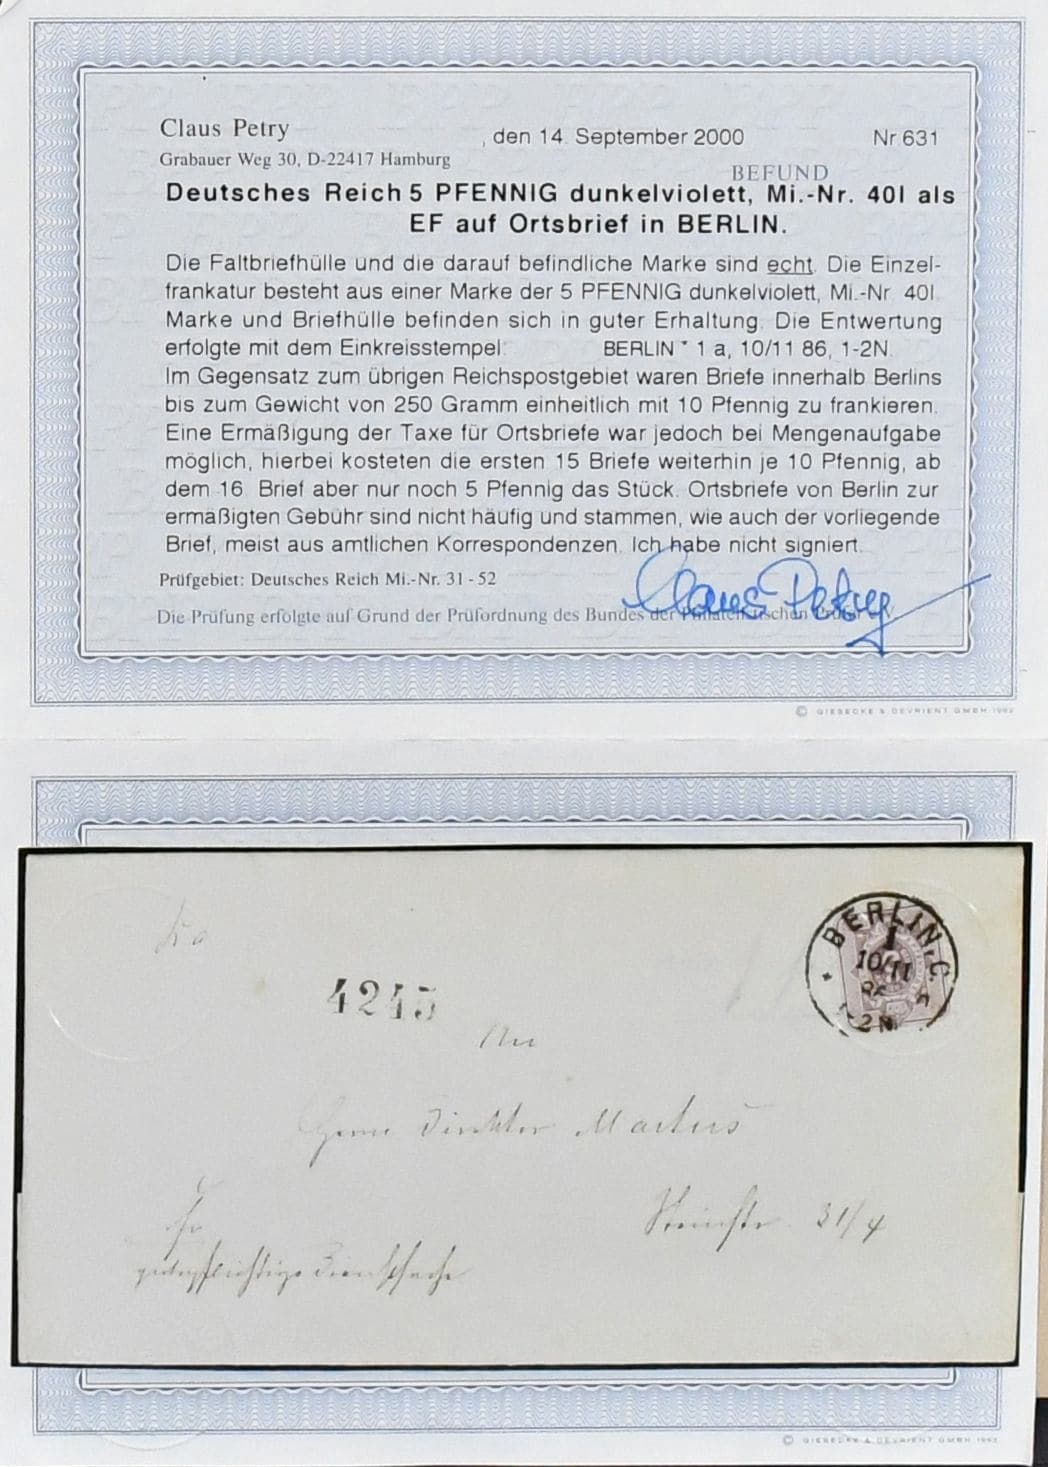 Claus Petry
, den 14. September 2000
Nr 631
Grabauer Weg 30, D-22417 Hamburg
BEFUND
Deutsches Reich 5 PFENNIG dunkelviolett, Mi.-Nr. 40I als
EF auf Ortsbrief in BERLIN.
Die Faltbriefhülle und die darauf befindliche Marke sind echt. Die Einzel-
frankatur besteht aus einer Marke der 5 PFENNIG dunkelviolett, Mi.-Nr. 40I.
Marke und Briefhülle befinden sich in guter Erhaltung. Die Entwertung
erfolgte mit dem Einkreisstempel: BERLIN * 1 a, 10/11 86, 1-2N.
Im Gegensatz zum übrigen Reichspostgebiet waren Briefe innerhalb Berlins
bis zum Gewicht von 250 Gramm einheitlich mit 10 Pfennig zu frankieren.
Eine Ermäßigung der Taxe für Ortsbriefe war jedoch bei Mengenaufgabe
möglich, hierbei kosteten die ersten 15 Briefe weiterhin je 10 Pfennig, ab
dem 16. Brief aber nur noch 5 Pfennig das Stück. Ortsbriefe von Berlin zur
ermäßigten Gebühr sind nicht häufig und stammen, wie auch der vorliegende
Brief, meist aus amtlichen Korrespondenzen. Ich habe nicht signiert.
Prüfgebiet: Deutsches Reich Mi.-Nr. 31 - 52
Claus Petry
Die Prüfung erfolgte auf Grund der Prüfordnung des Bundes der Philatelistischen Prüfer e.V
© GIESECKE & DEVRIENT GMBH 1992
BERLIN, C.
1
10/11
86 A
1-2N
4245
An
Herrn Direktor Martius
Steinstr. 31/4
Fr
gebührpflichtige Dienstsache
© GIESECKE & DEVRIENT GMBH 1992